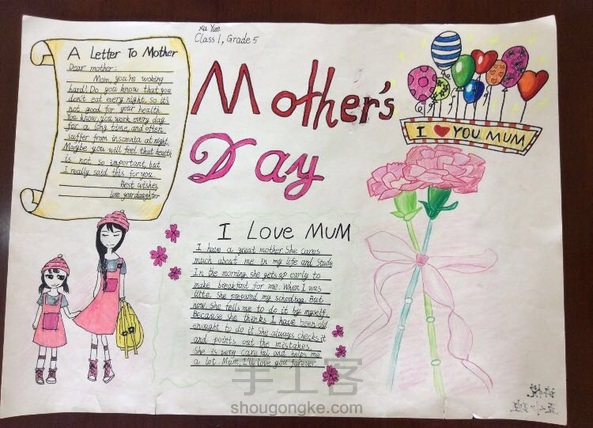 Xu Yue
Class 1, Grade 5
A Letter To Mother
Dear mother:
Mom, you're woking
hard! Do you know that you
don't eat every night, so it's
not good for your health
You know, you work every day
for a long time, and often
suffer from insomnia at night,
Maybe you will feel that health
is not so important, but
I really said this for you
Best wishes
Love your daughter
Mother's
Day
I ❤ YOU MUM
I Love MUM
I have a great mother. She cares
much about me in my life and study
In the morning she gets up early to
make breakfast for me. When I was
little, she prepared my schoolbag. But
now she tells me to do it by myself.
Because she thinks I have been old
enought to do it. She always checks it
and points out the mistakes
She is very careful and helps me
a lot. Mum, I'll love you forever.
手工客
shougongke.com
五(一)班